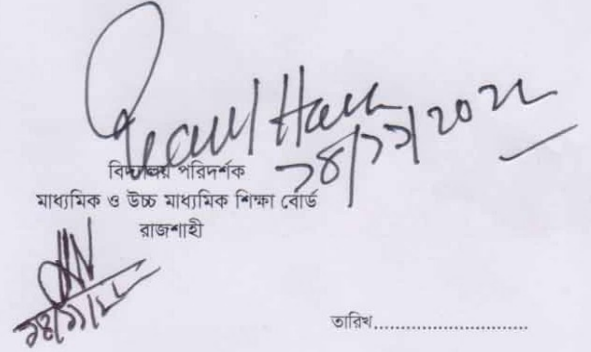 ১৪/১১/২০২২
বিদ্যালয় পরিদর্শক
মাধ্যমিক ও উচ্চ মাধ্যমিক শিক্ষা বোর্ড
রাজশাহী
১৪/১১/২২
তারিখ..............................